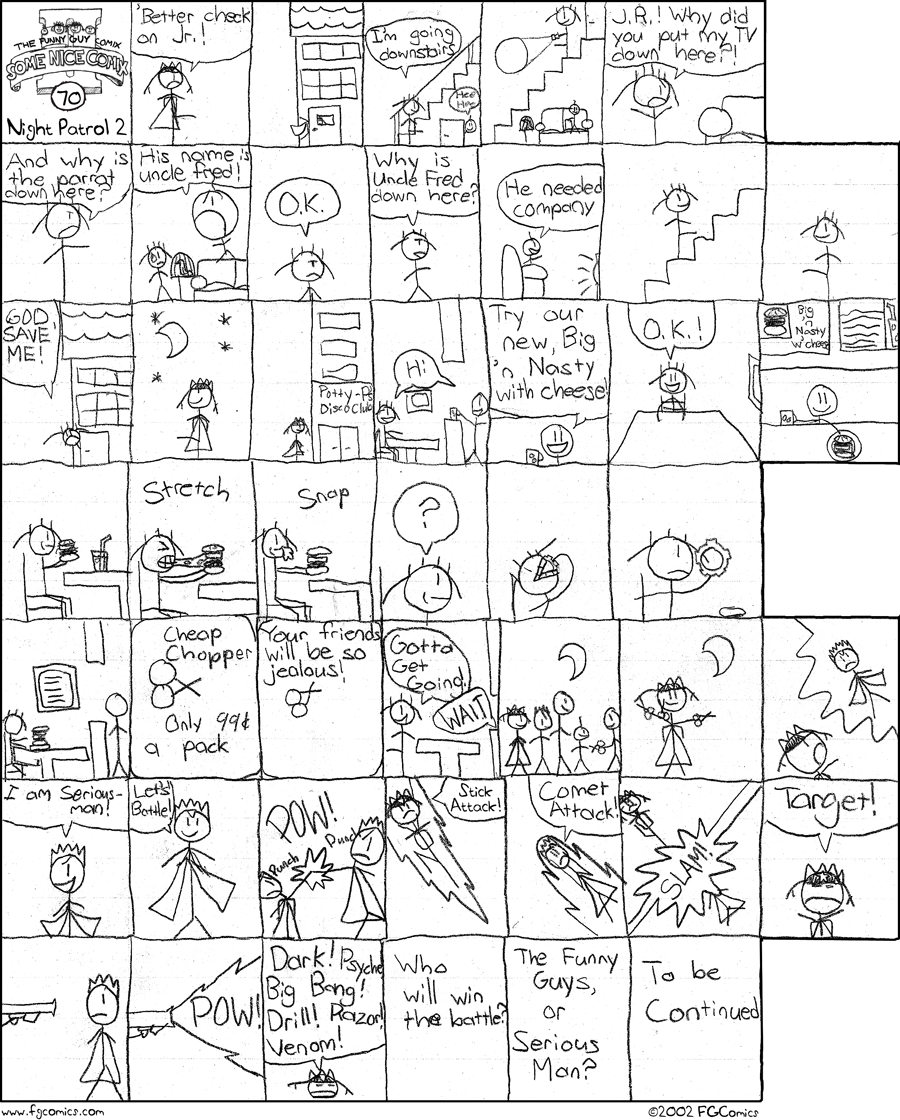 THE FUNNY GUY COMIX
SOME NICE COMIX
70
Night Patrol 2
'Better check
on Jr.!
I'm going
downstairs
Hee
Hee
J.R.! Why did
you put my TV
down here?!
And why is
the parrot
down here?
His name is
uncle fred!
O.K.
Why is
Uncle Fred
down here?
He needed
company
GOD
SAVE
ME!
Potty-Ps
Disco Club
Hi
Try our
new, Big
'n Nasty
with cheese!
O.K.!
Big
'n
Nasty
w'cheese
Stretch
Snap
?
Cheap
Chopper
Only 99¢
a pack
Your friends
will be so
jealous!
Gotta
Get
Going!
WAIT
I am Serious-
man!
Let's
Battle!
POW!
Punch
Punch
Stick
Attack!
Comet
Attack!
SLAM!
Target!
POW!
Dark! Psyche!
Big Bang!
Drill! Razor!
Venom!
Who
will win
the battle?
The Funny
Guys,
or
Serious
Man?
To be
Continued
www.fgcomics.com
©2002 FGComics